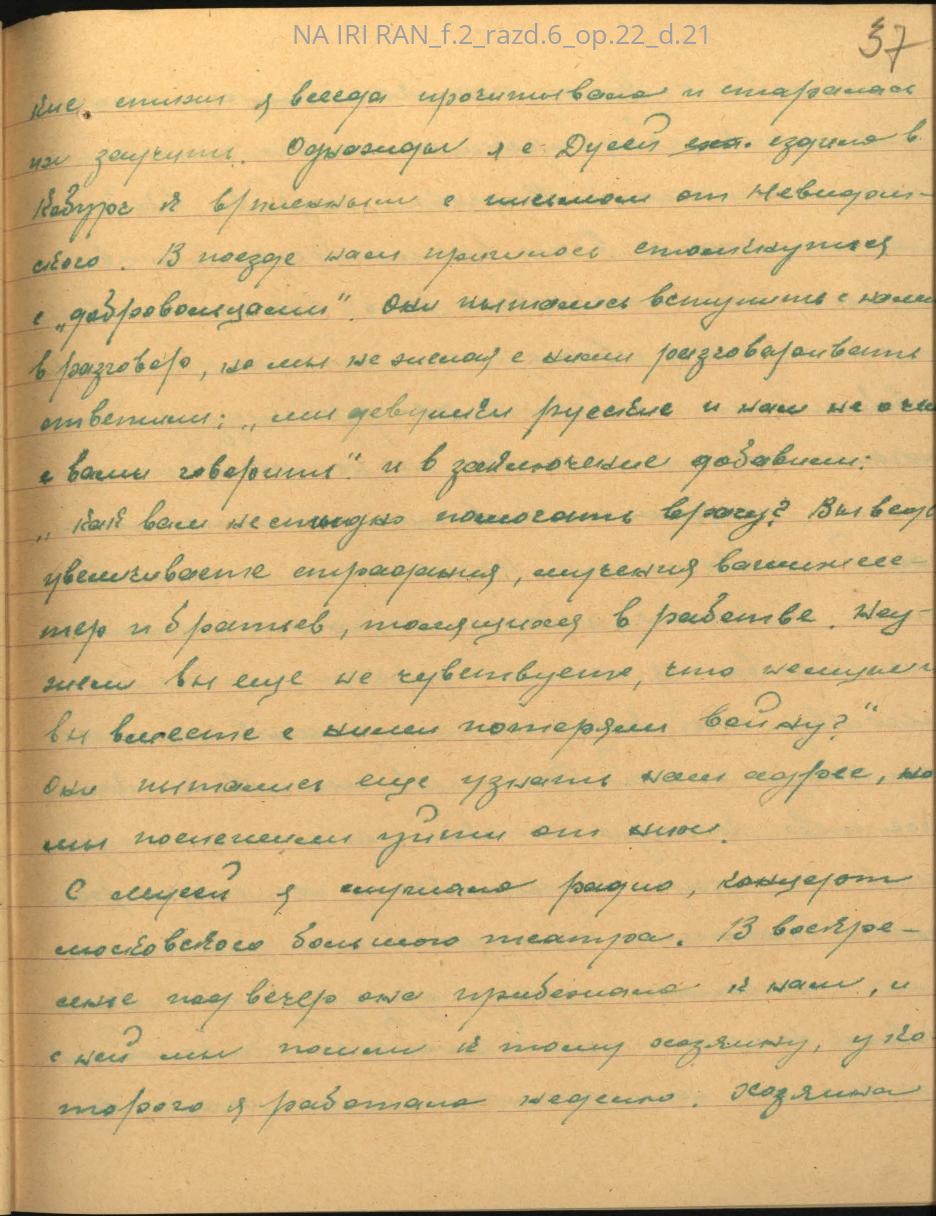 NA IRI RAN_f.2_razd.6_op.22_d.21
37
кие стихи я всегда прочитывала и старалась
их заучить. Однажды я с Дусей ездила в
Кобург к в/пленным с письмом от Невидом-
ского. В поезде нам пришлось столкнуться
с „добровольцами". Они пытались вступить с нами
в разговор, но мы не желая с ними разговаривать
ответили: „мы девушки русские и нам не о чем
с вами говорить" и в заключение добавили:
„Как вам не стыдно помогать врагу? Вы ведь
увеличиваете страдания, мучения ваших сес-
тер и братьев, томящихся в рабстве. Неу-
жели вы еще не чувствуете, что немцы и
вы вместе с ними потеряли войну?"
Они пытались еще узнать наш адрес, но
мы поспешили уйти от них.
С Мусей я слушала радио, концерт
московского большого театра. В воскре-
сенье под вечер она прибежала к нам, и
с ней мы пошли к тому хозяину, у ко-
торого я работала неделю. Хозяина